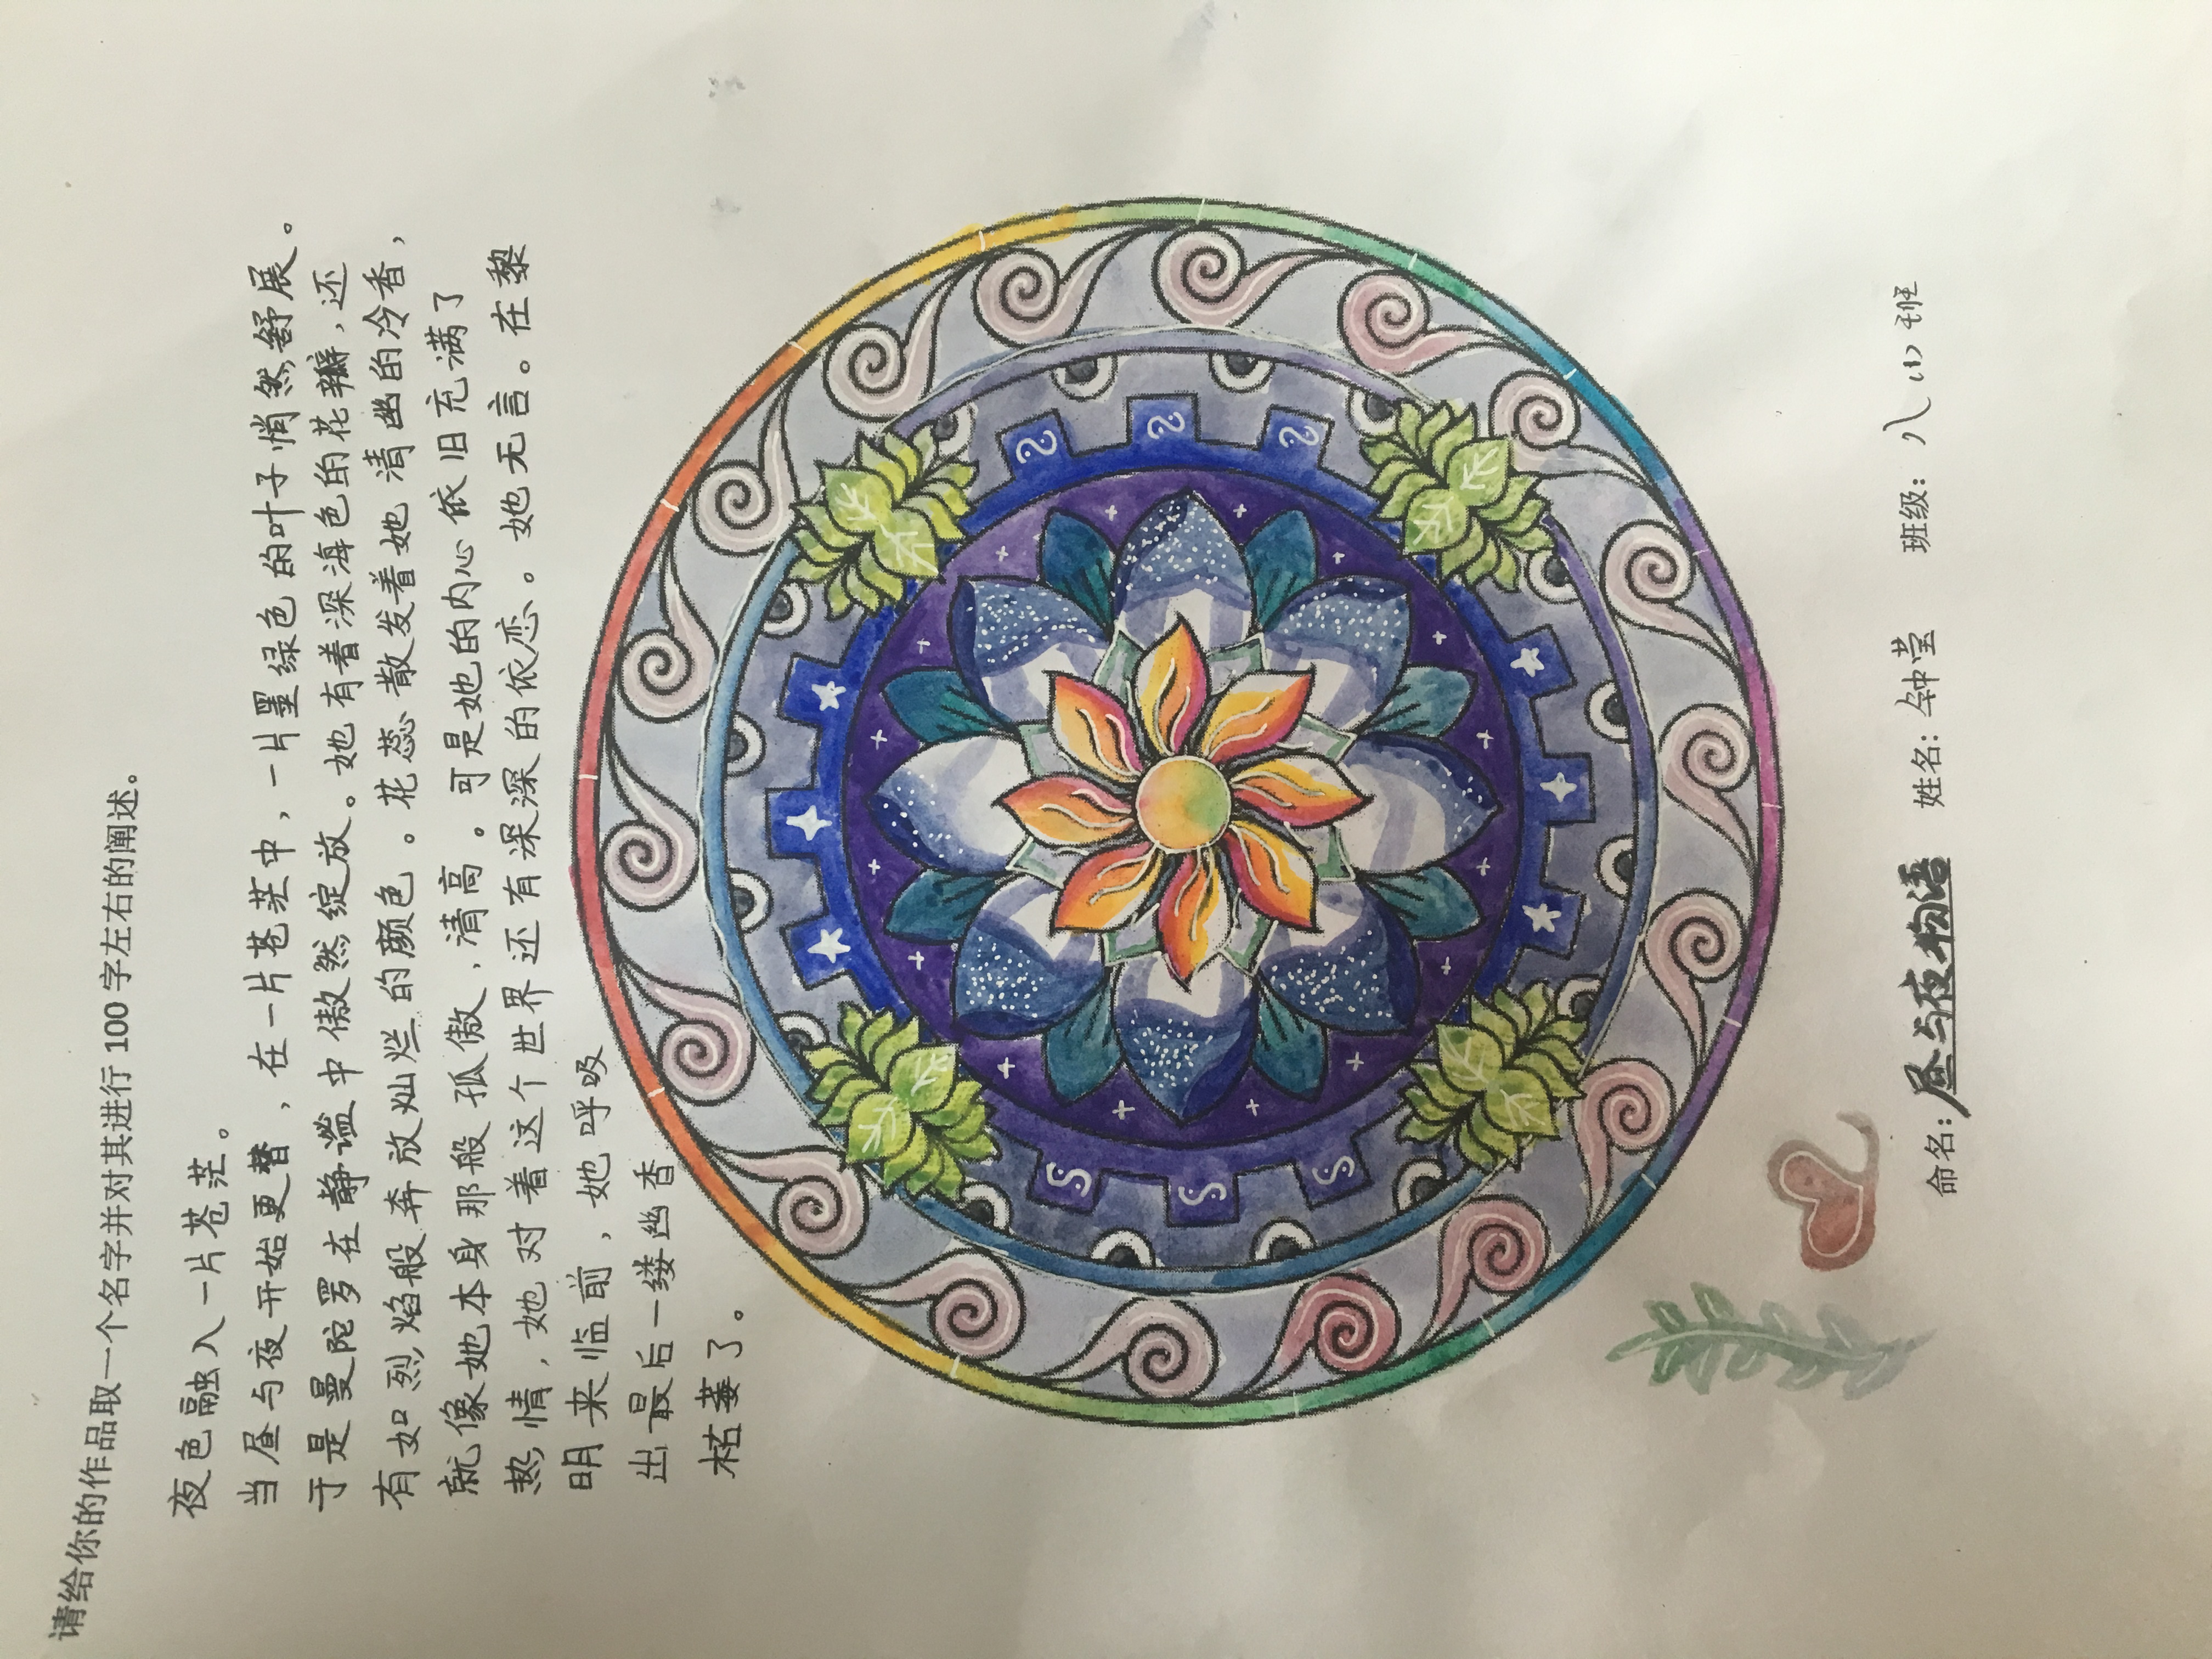 请给你的作品取一个名字并对其进行 100 字左右的阐述。
夜色融入一片苍茫。
当昼与夜开始更替，在一片苍茫中，一片墨绿色的叶子悄然舒展。
于是曼陀罗在静谧中傲然绽放。她有着深海色的花瓣，还
有如烈焰般奔放灿烂的颜色。花蕊散发着她清幽的冷香，
就像她本身那般孤傲，清高。可是她的内心依旧充满了
热情，她对着这个世界还有深深的依恋。她无言。在黎
明来临前，她呼吸
出最后一缕幽香
枯萎了。
命名：昼与夜物语 姓名：钟莹 班级：八（1）班